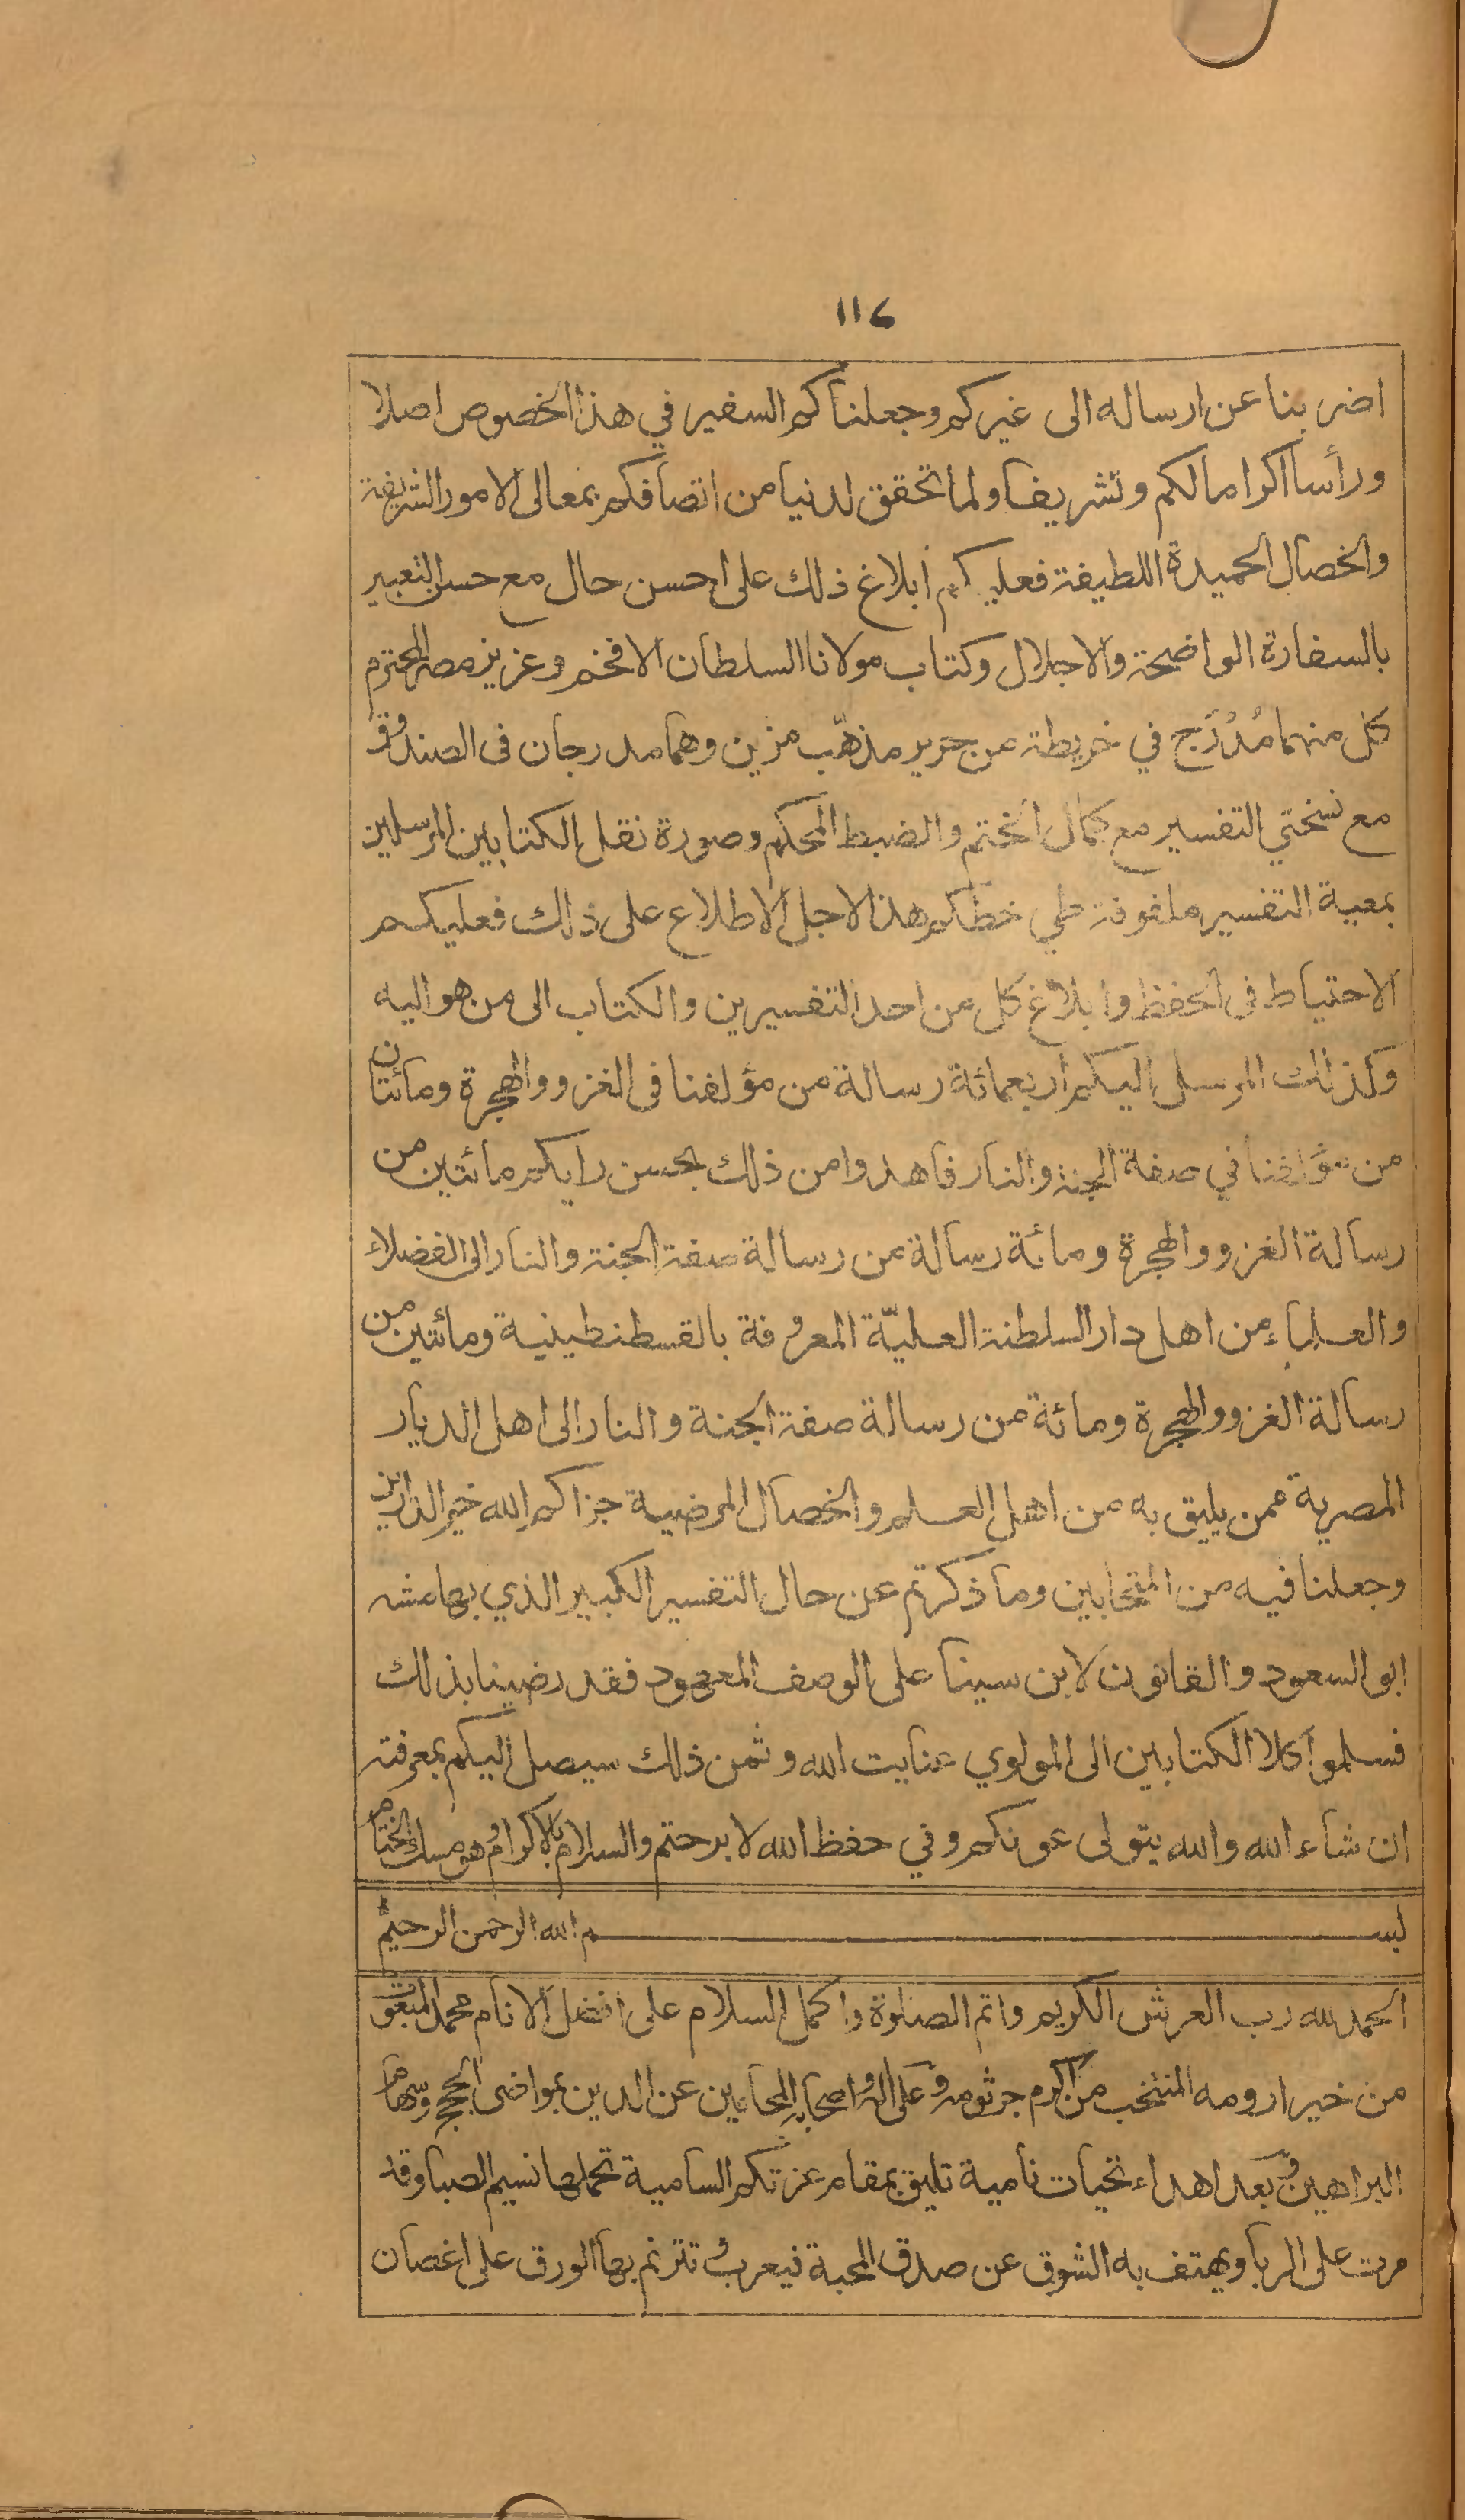 ١١٤
اضربنا عن ارساله الى غيركم وجعلناكم السفير في هذا الخصوص اصلا
ورأسا اكراما لكم وتشريفا ولما تحقق لدنيا من اتصافكم بمعالى الامور الشريفة
والخصال الحميدة اللطيفة فعليكم ابلاغ ذلك على احسن حال مع حسن التعبير
بالسفارة الواضحة والاجلال وكتاب مولانا السلطان الافخم وعزيز مصر المحترم
كل منهما مُدْرَج في خريطة من حرير مذهّب مزين وهما مدرجان فى الصندوق
مع نسختي التفسير مع كمال الختم والضبط المحكم وصورة نقل الكتابين المرسلين
بمعية التفسير ملفوفة طي خطكم هذا لاجل الاطلاع على ذلك فعليكم
الاحتياط فى الحفظ وابلاغ كل من احد التفسيرين والكتاب الى من هو اليه
وكذلك المرسل اليكم اربعمائة رسالة من مؤلفنا فى الغزو والهجرة ومائتان
من مؤلفنا في صفة الجنة والنار فاهدوا من ذلك بحسن رايكم مائتين من
رسالة الغزو والهجرة ومائة رسالة من رسالة صفة الجنة والنار الى الفضلاء
والعلماء من اهل دار السلطنة العليّة المعروفة بالقسطنطينية ومائتين من
رسالة الغزو والهجرة ومائة من رسالة صفة الجنة والنار الى اهل الديار
المصرية ممن يليق به من اهل العلم والخصال المرضية جزاكم الله خير الدارين
وجعلنا فيه من المتحابين وما ذكرتم عن حال التفسير الكبير الذي بهامشه
ابو السعود والقانون لابن سينا على الوصف المعهود فقد رضينا بذلك
فسلموا كلا الكتابين الى المولوي عنايت الله وثمن ذلك سيصل اليكم بمعرفته
ان شاء الله والله يتولى عونكم وفي حفظ الله لا برحتم والسلام بالاكرام وهو مسك الختام
بسم الله الرحمن الرحيم
الحمد لله رب العرش الكريم واتم الصلوة واكمل السلام على افضل الانام محمد المبعوث
من خير ارومه المنتخب من اكرم جرثومه وعلى اله واصحابه المحامين عن الدين بمواضى الحجج وسهام
البراهين وبعد اهداء تحيات نامية تليق بمقام عزتكم السامية تحملها نسيم الصبا وقد
مرت على الربا ويهتف به الشوق عن صدق المحبة فيعرب وتترنم بها الورق على اغصان